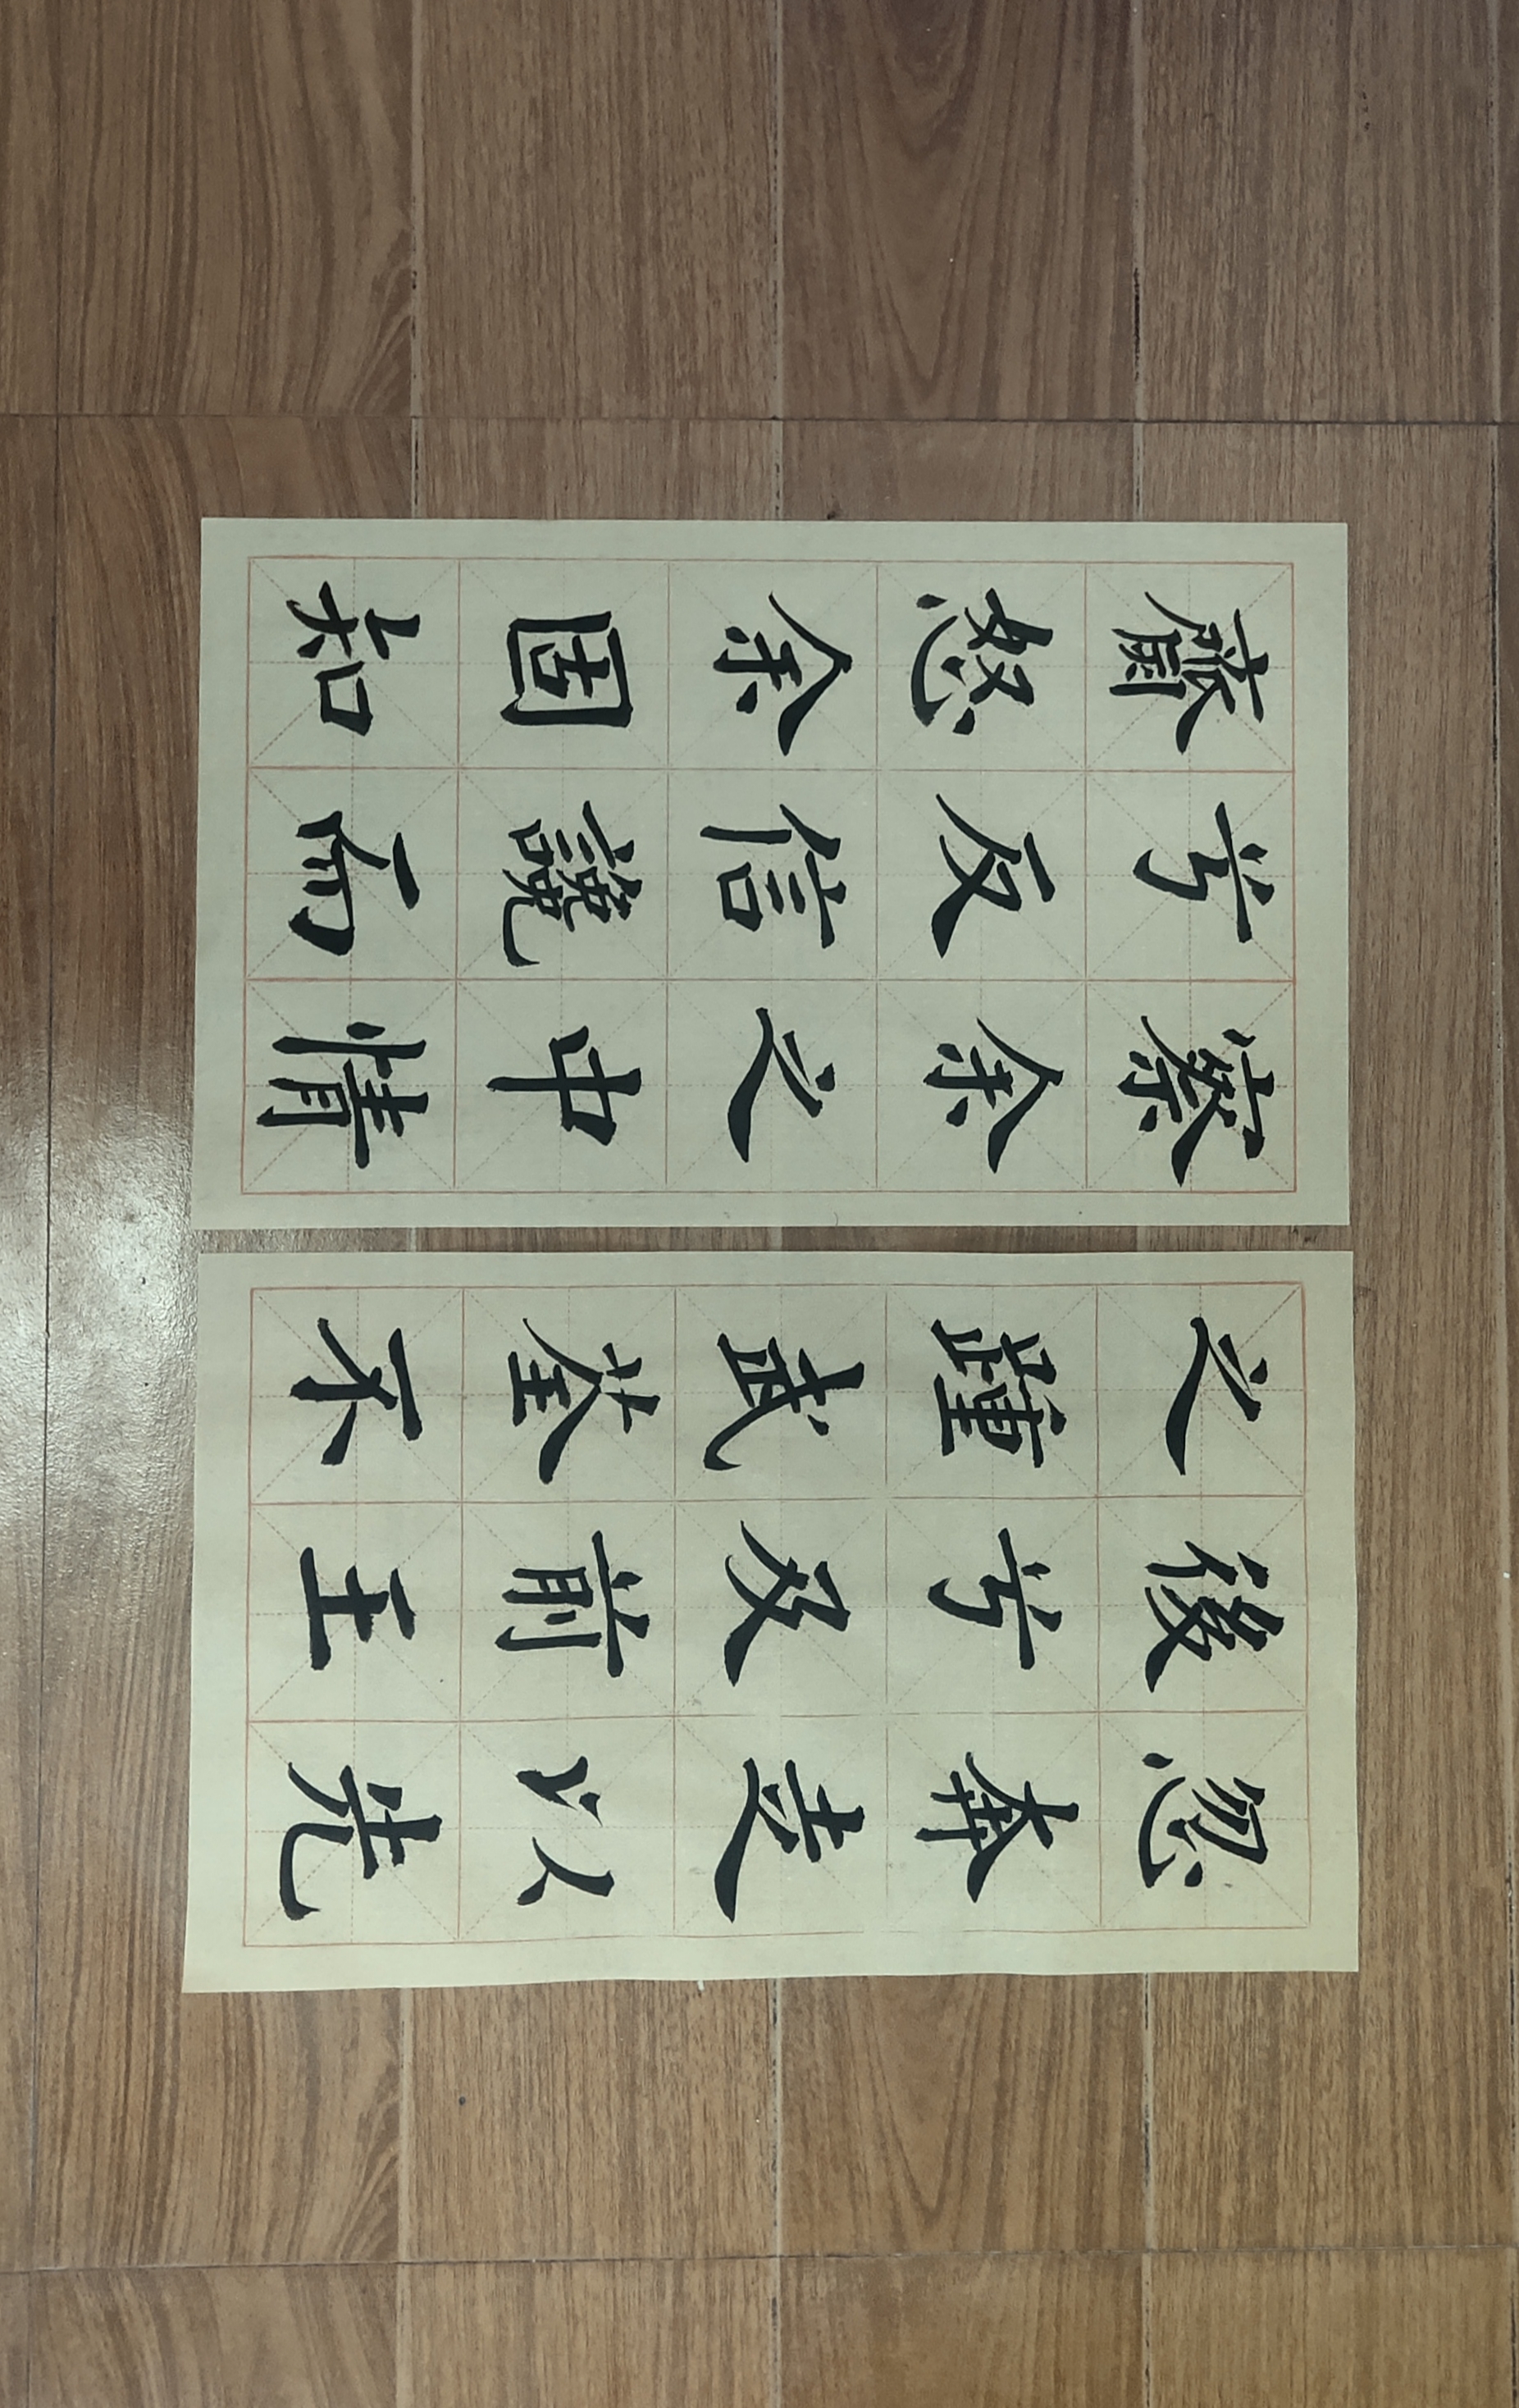 忽奔走以先
後兮及前王
之踵武荃不
察余之中情
兮反信讒而
怒余固知